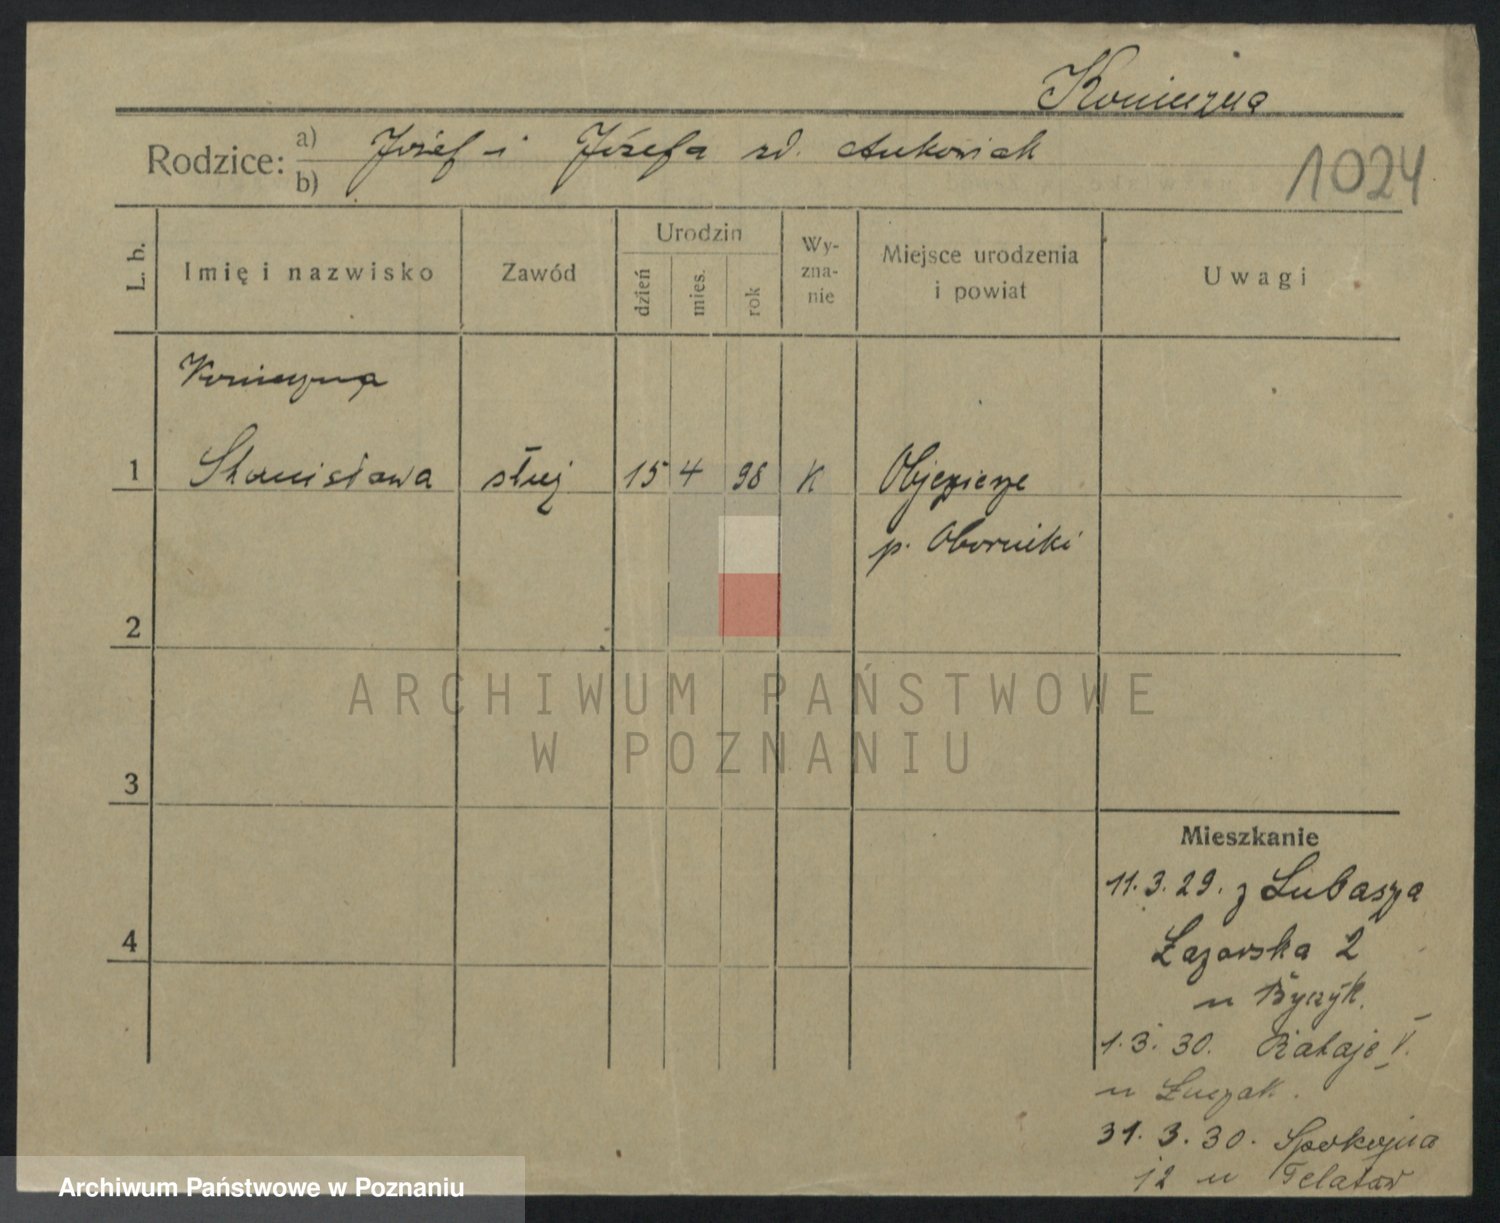 Konieczna
Rodzice: a) Józef i Józefa zd.
b)
1024
L. b.
Imię i nazwisko
Zawód
Urodzin
dzień
mies.
rok
Wy-
zna-
nie
Miejsce urodzenia
i powiat
Uwagi
Konieczna
1 Stanisława służ 15 4 98 K Objezierze
p. Oborniki
2
ARCHIWUM PAŃSTWOWE
W POZNANIU
3
Mieszkanie
11.3.29. z Lubasza
4
Łazarska 2
u
1.3.30. Rataje V.
u Łuczak.
31.3.30. Spokojna
12 u
Archiwum Państwowe w Poznaniu